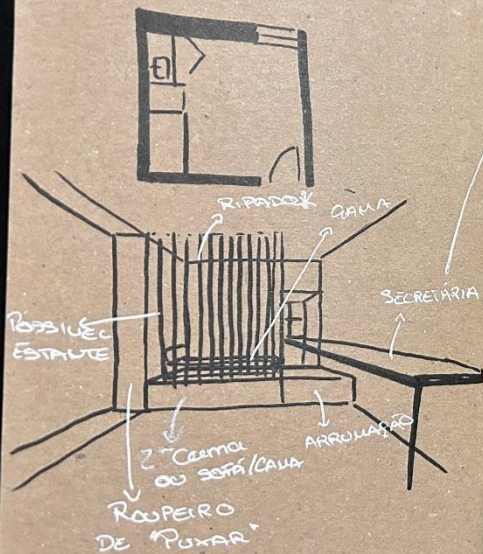 RIPADO
CAMA
SECRETÁRIA
POSSÍVEL
ESTANTE
2ª Cama
ou SOFÁ/CAMA
ARRUMAÇÃO
ROUPEIRO
DE "PUXAR"